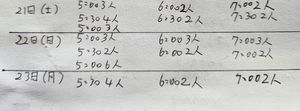 21日(土) 5:003人 6:002人 7:002人
5:304人 6:302人 7:302人
5:003人
22日(日) 5:003人 6:003人 7:003人
5:302人 6:002人 7:002人
5:006人
23日(月) 5:304人 6:002人 7:002人